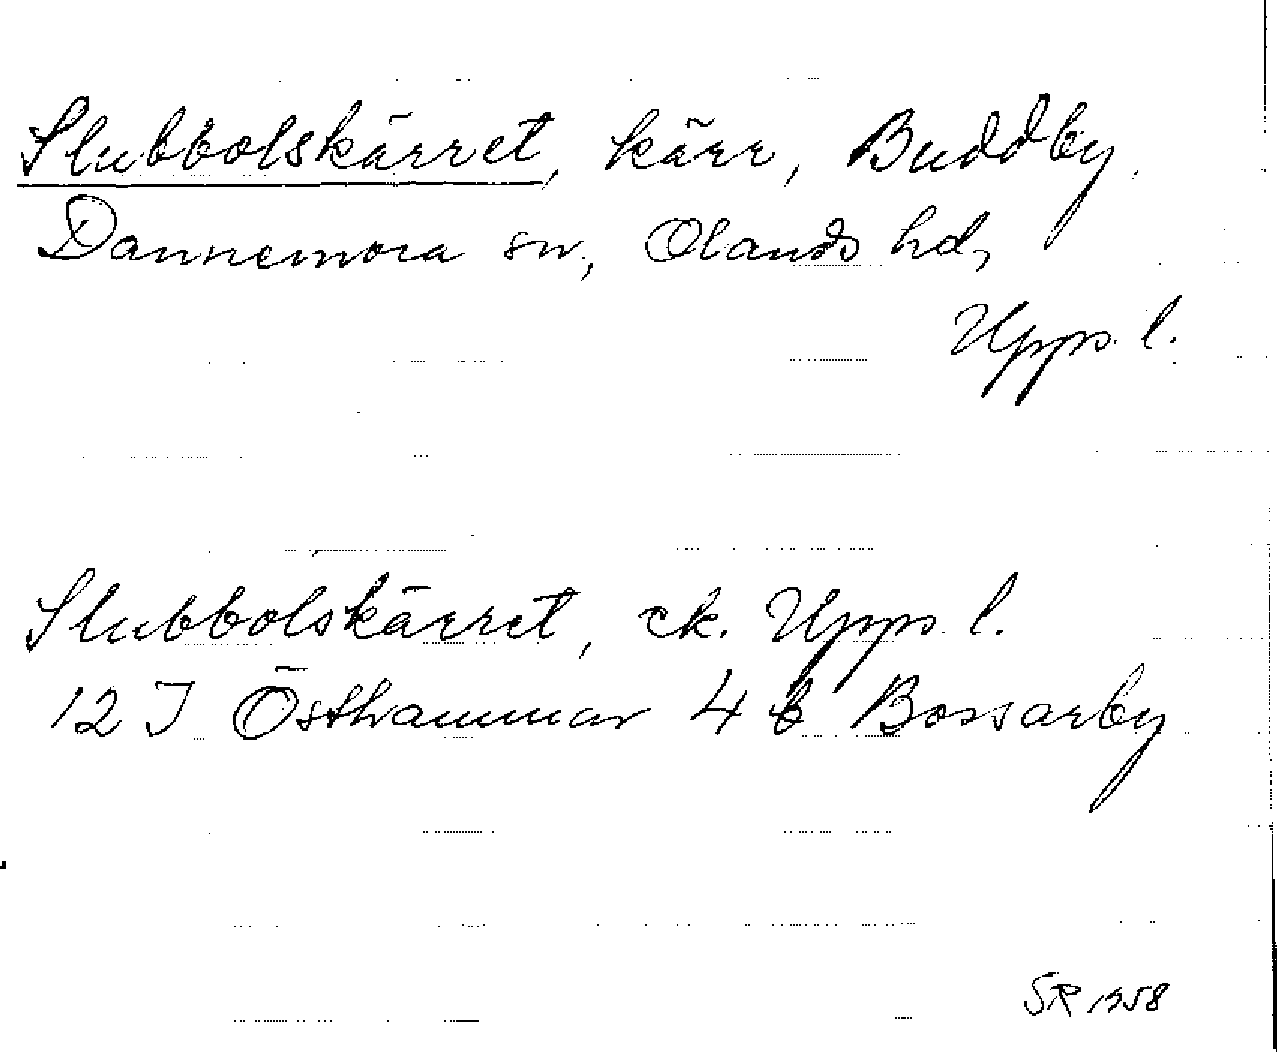 Slubbolskärret, kärr, Buddby,
Dannemora sn, Olands hd,
Upps. l.
Slubbolskärret, ek. Upps. l.
12 I Östhammar 4 b Bossarby
SR 1958